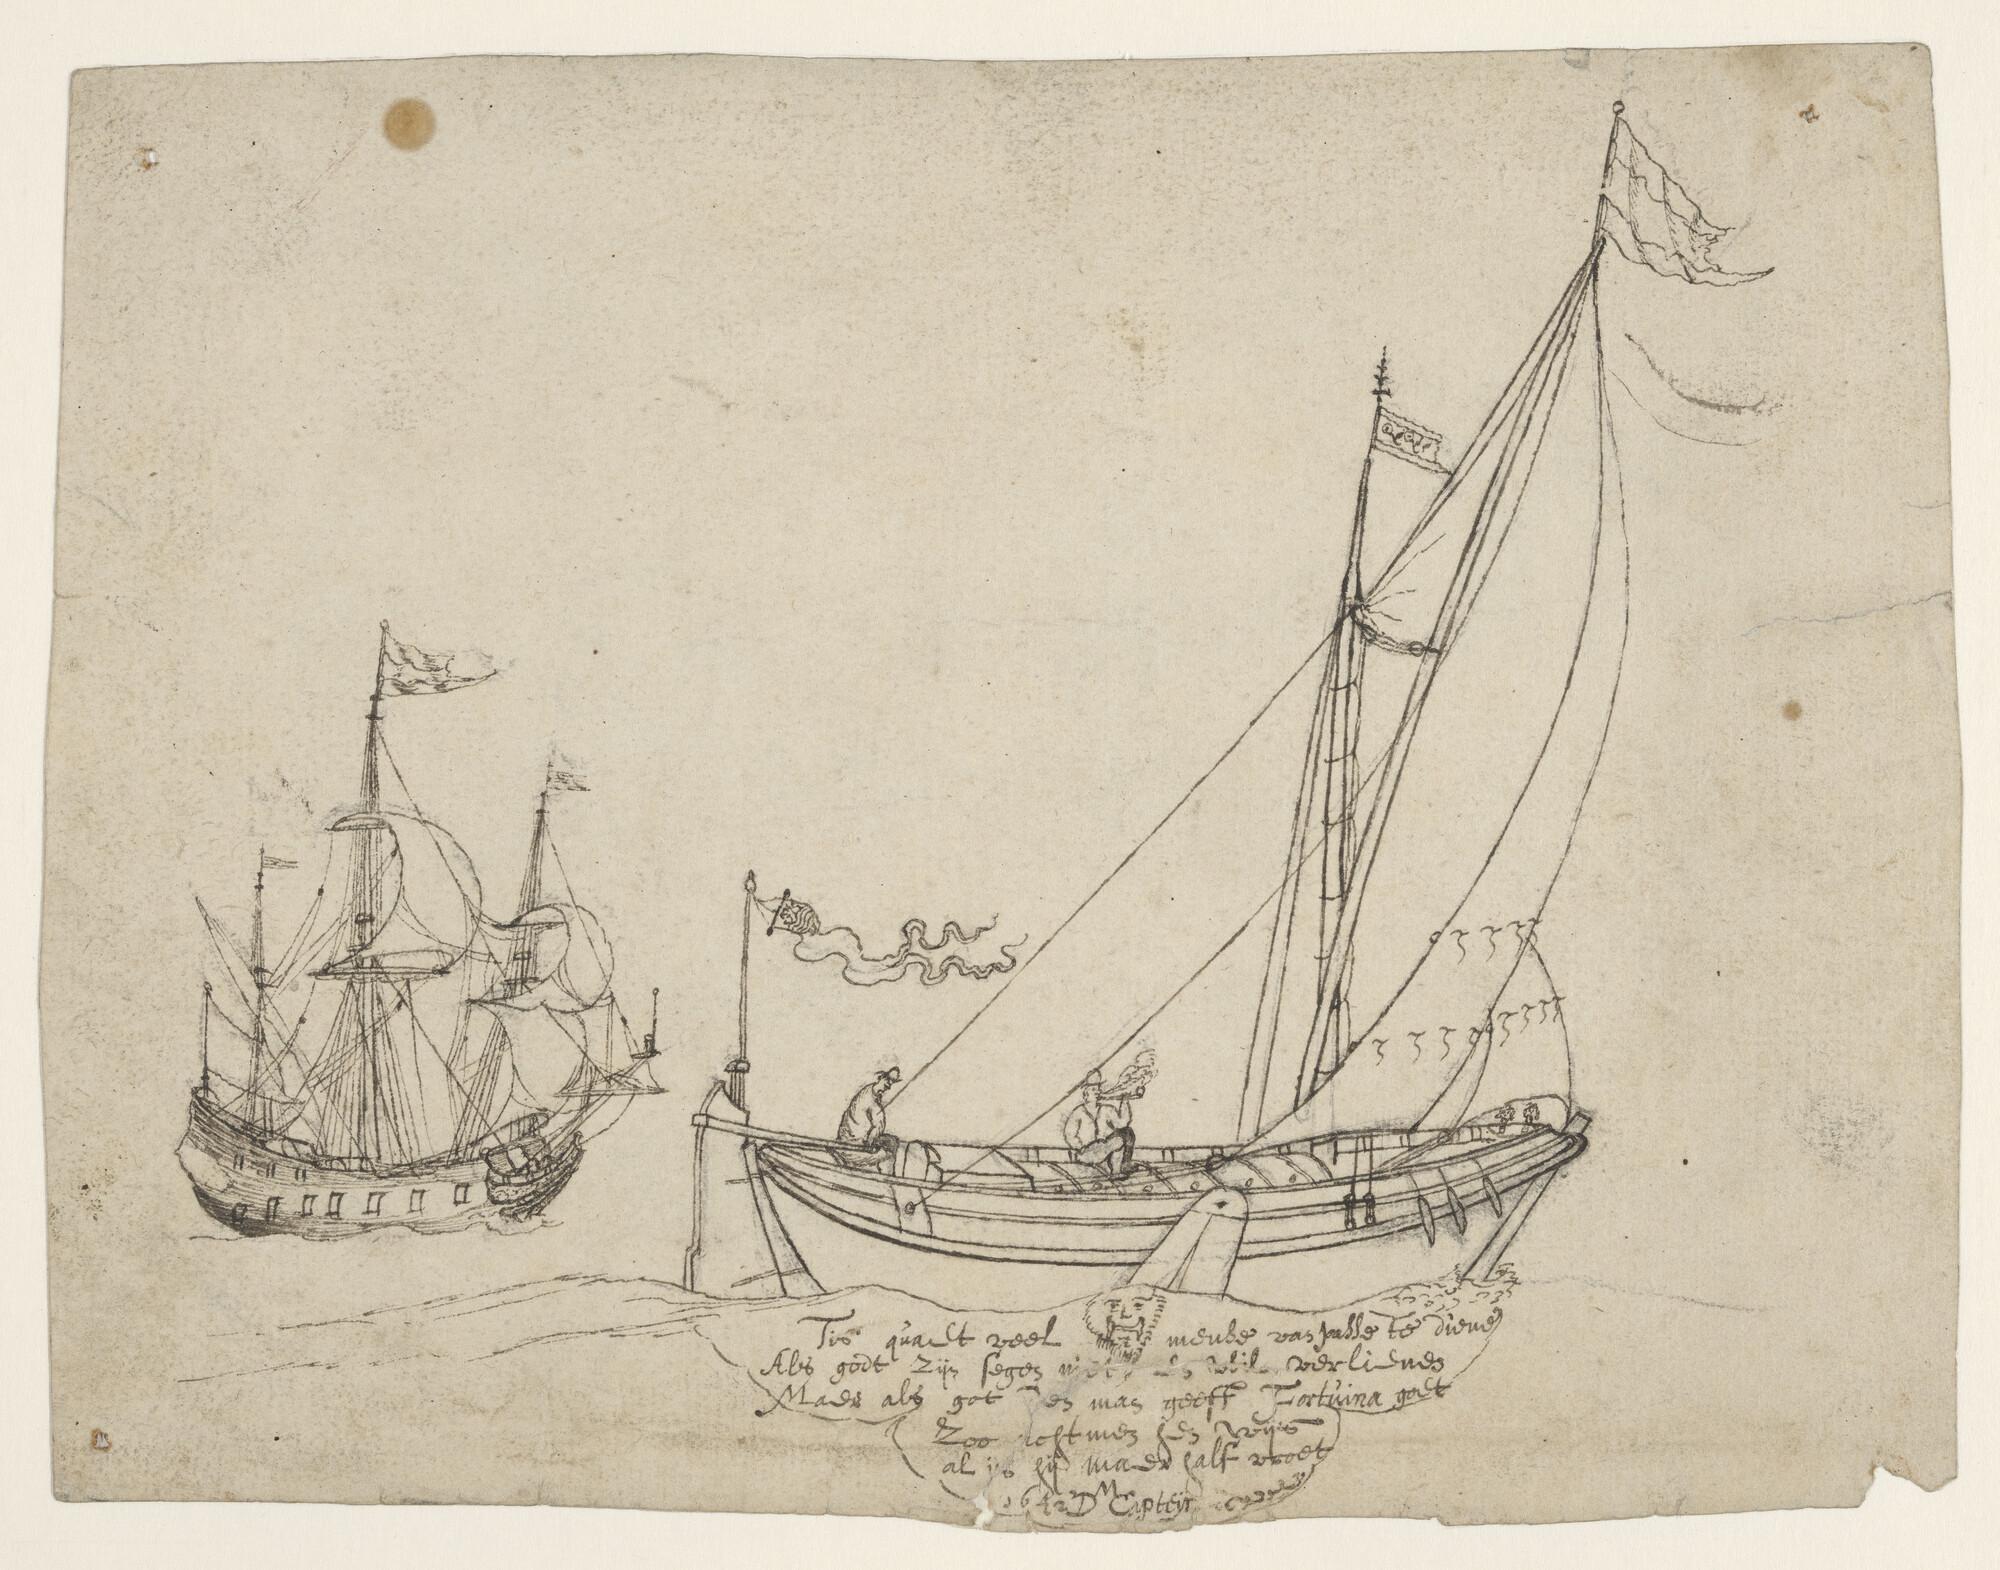 Tis quaelt veel menhe van passe te diene
Als godt Zijn segen niet en wil verlienen
Maer als got den man geeft Fortuina goet
Zoo achtmen hen Wijs
al is hij maer half vroet
1642 D M Capteijn